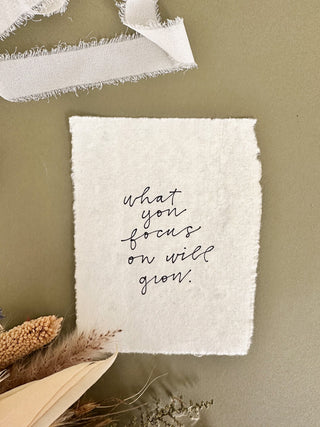 what
you
focus
on will
grow.